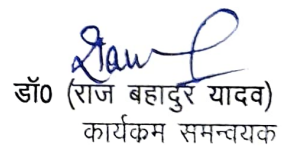 डॉ0 (राज बहादुर यादव)
कार्यक्रम समन्वयक